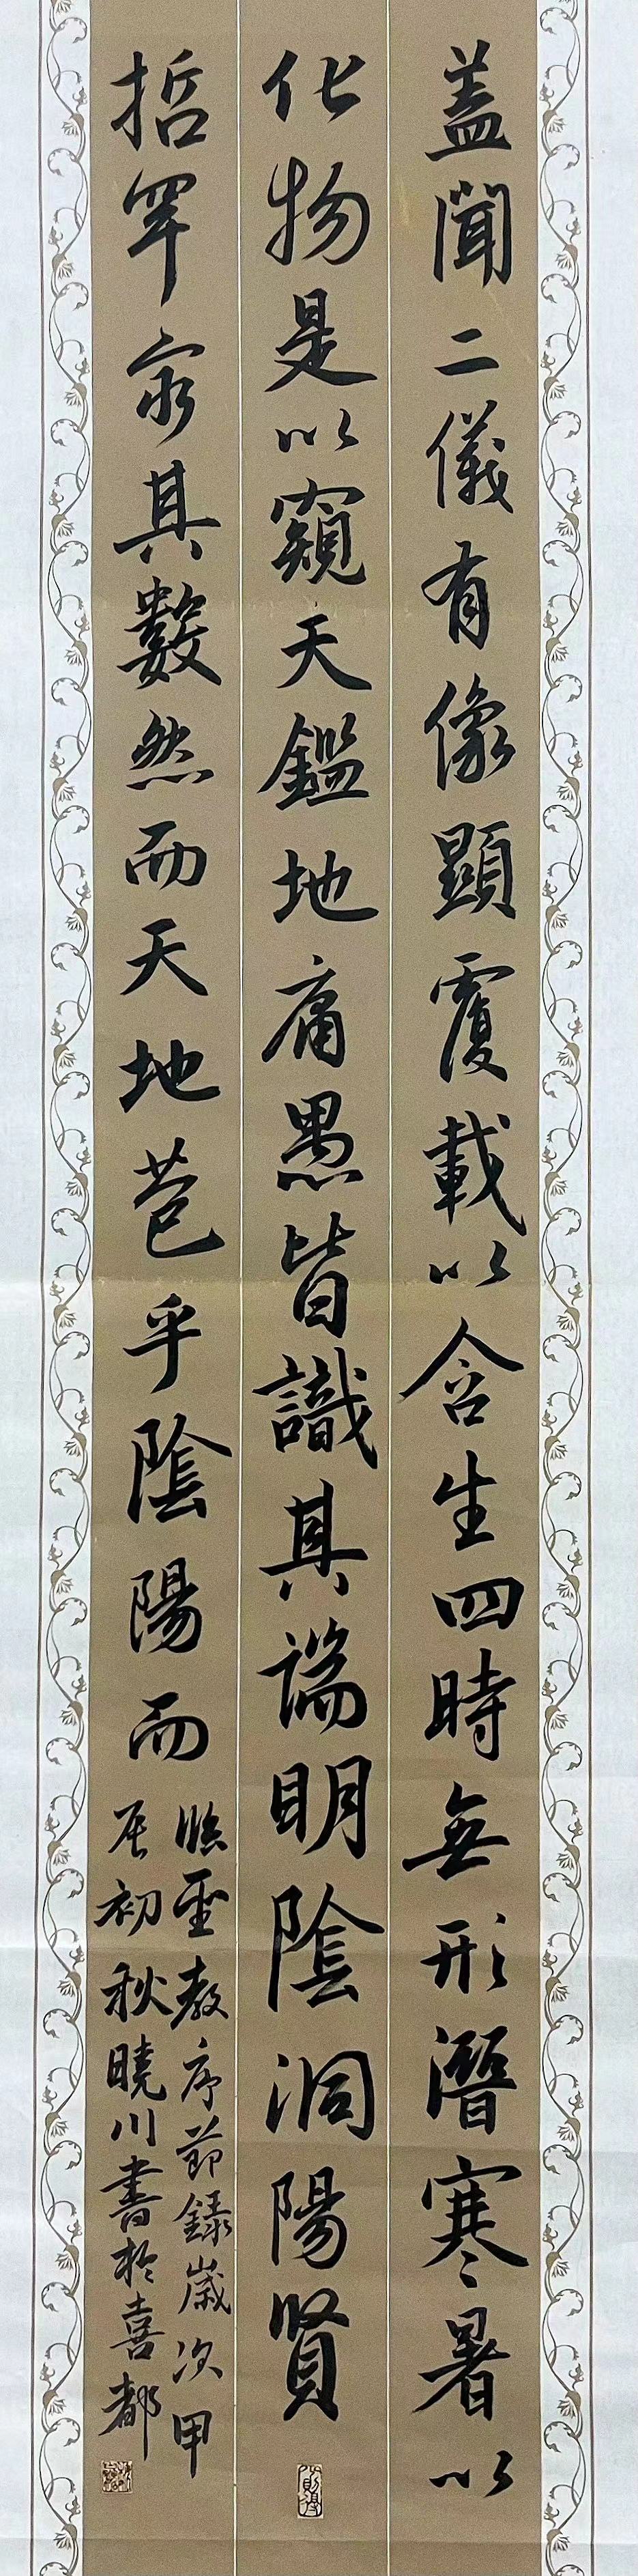 蓋聞二儀有像顯覆載以含生四時無形潛寒暑以
化物是以窺天鑑地庸愚皆識其端明陰洞陽賢
哲罕窮其數然而天地苞乎陰陽而
臨聖教序節錄歲次甲
辰初秋曉川書於喜都